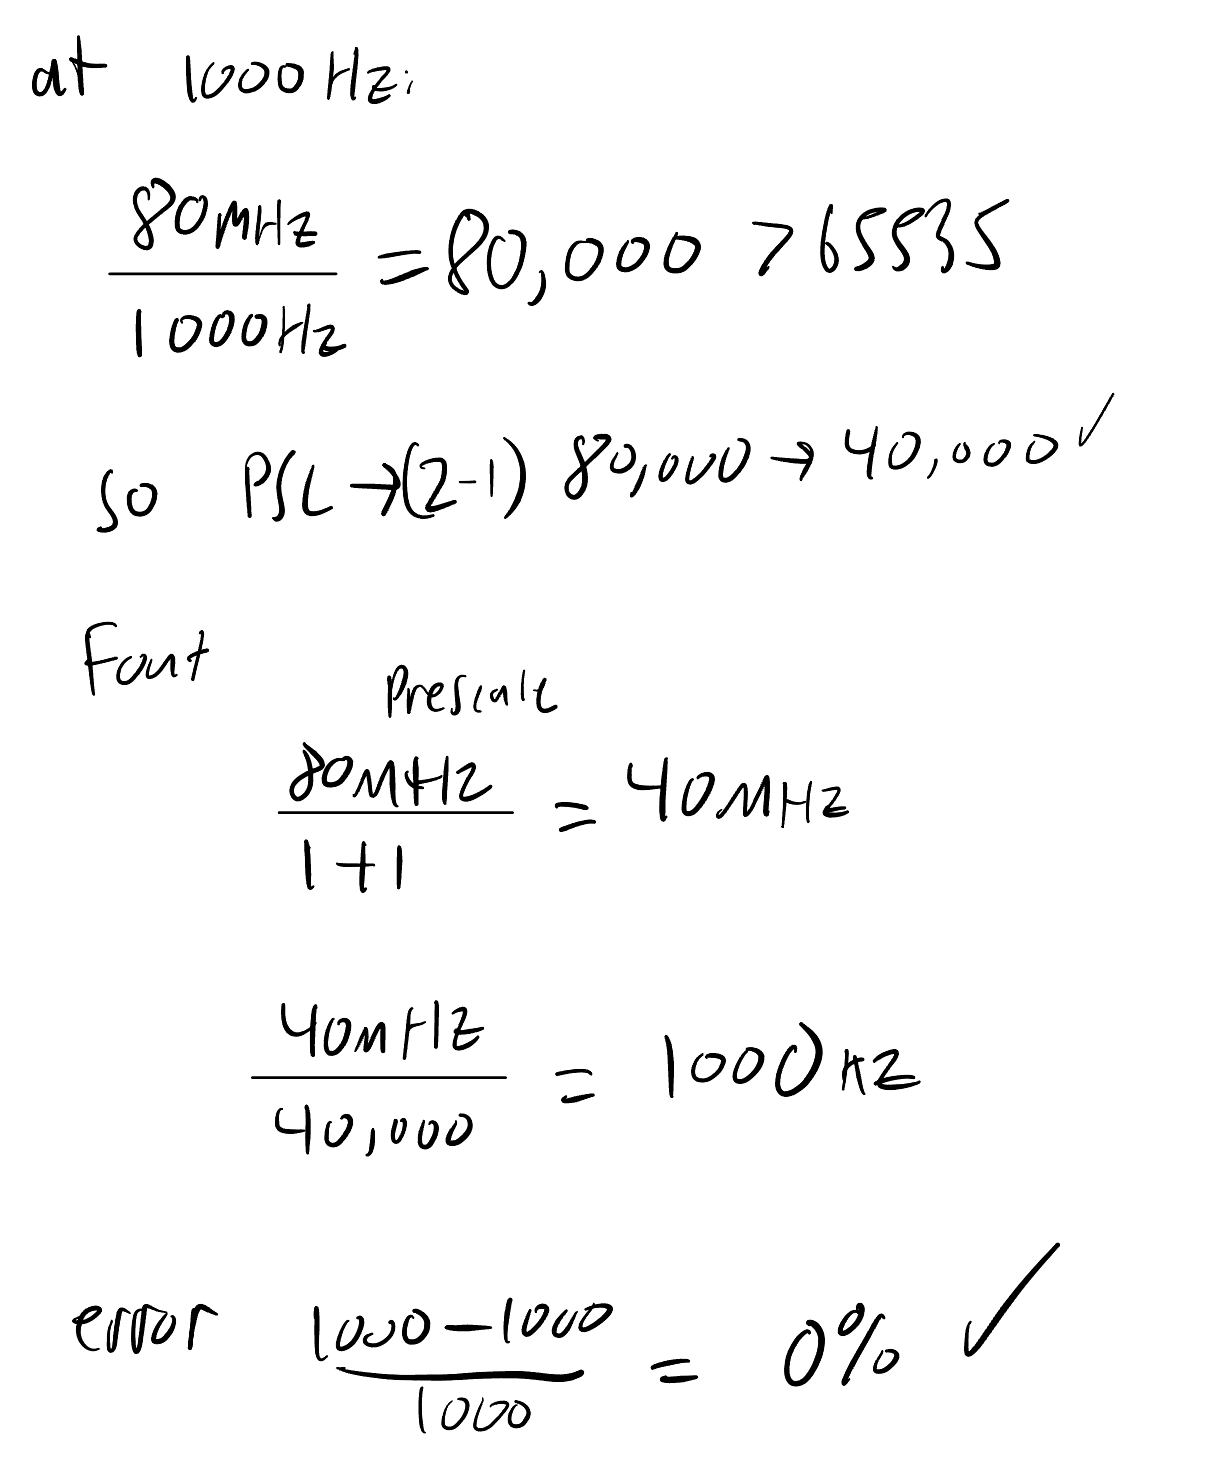 at 1000Hz:
80MHz
1000Hz
= 80,000 > 65535
so PSC → (2-1) 80,000 → 40,000 ✓
Fout
Prescale
80MHz
1+1
= 40MHz
40MHz
40,000
= 1000Hz
error 1000-1000
1000
= 0% ✓